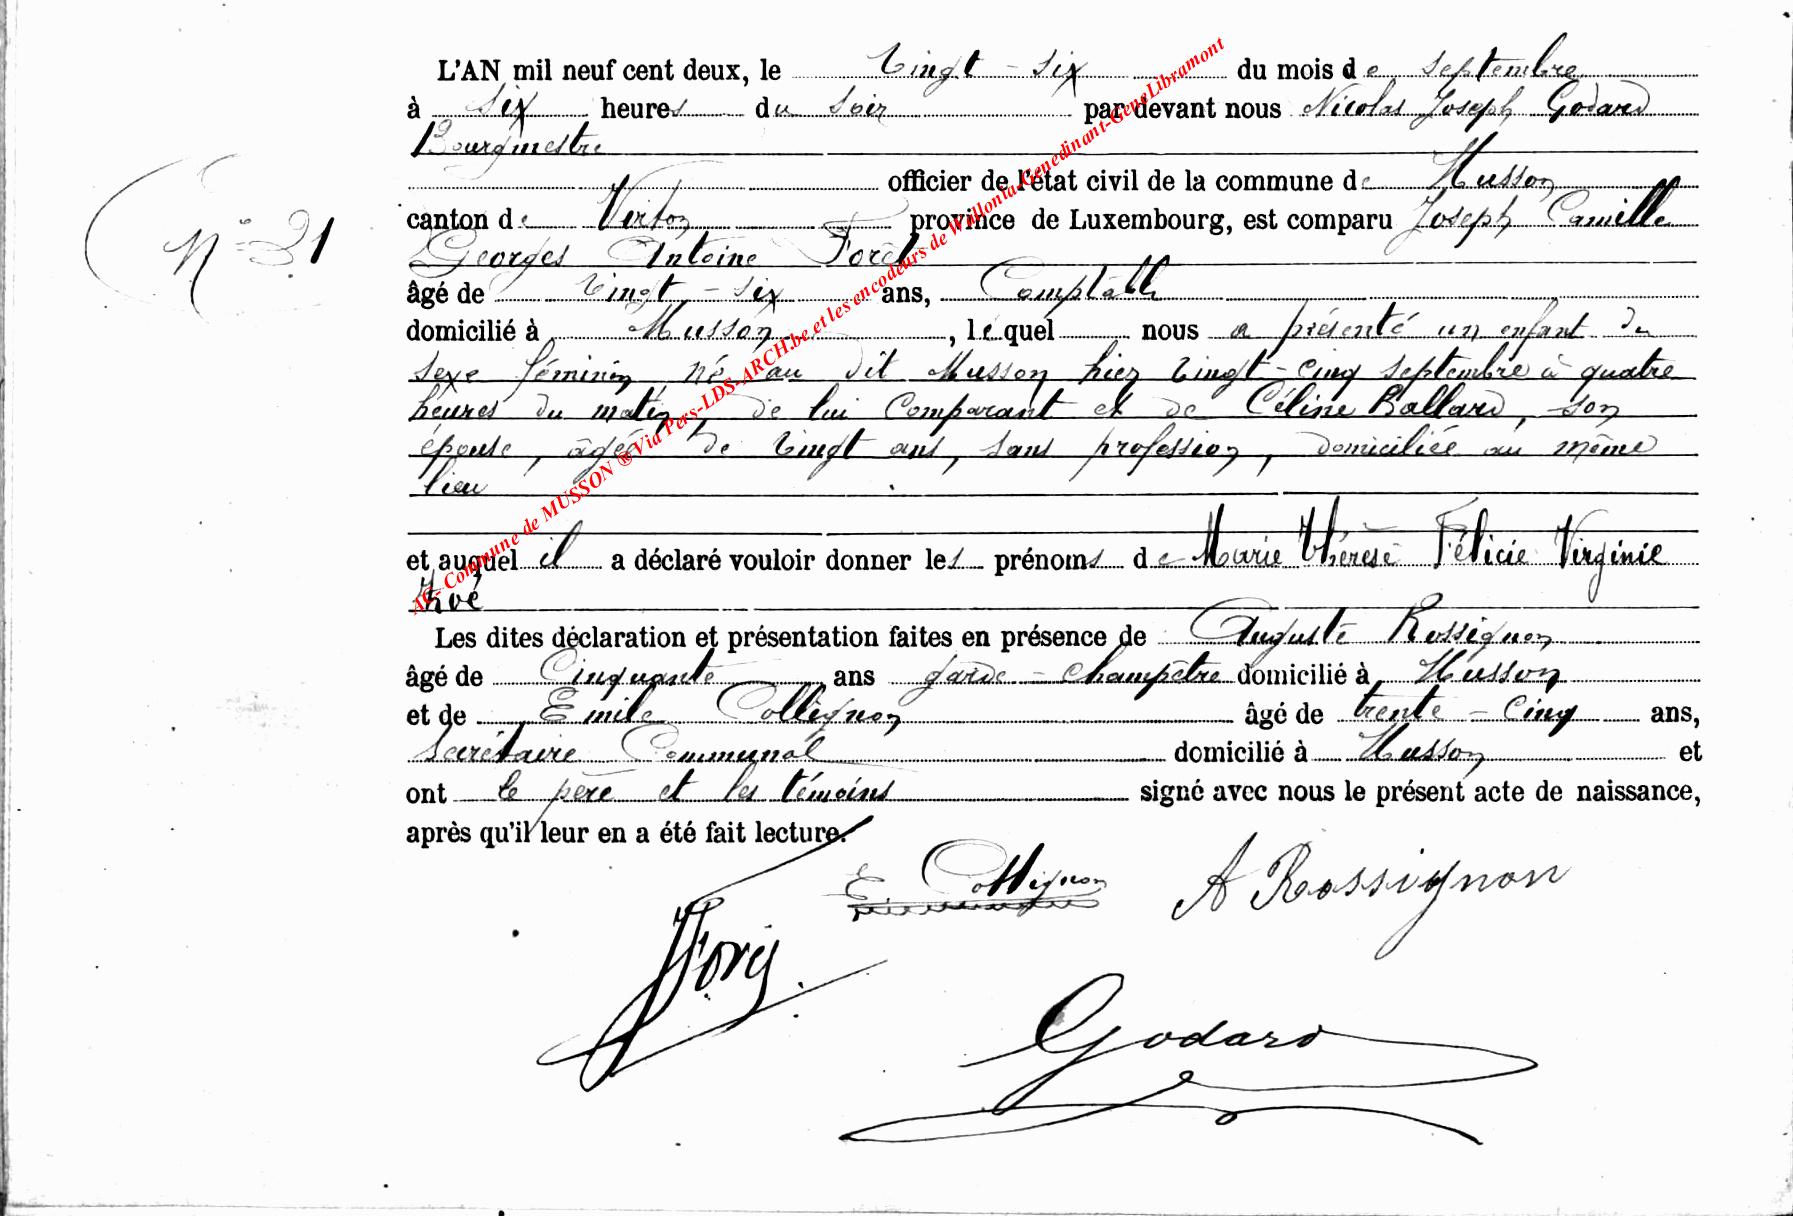 L'AN mil neuf cent deux, le vingt-six du mois de septembre
à six heures du soir par devant nous Nicolas Joseph Godard
Bourgmestre
officier de l'état civil de la commune de Musson
N° 31
canton de Virton province de Luxembourg, est comparu Joseph Camille
Georges Antoine Forêt
âgé de vingt-six ans, Comptable
domicilié à Musson, lequel nous a présenté un enfant du
sexe féminin né au dit Musson hier vingt-cinq septembre à quatre
heures du matin de lui Comparant et de Céline Rollard, son
épouse, âgée de vingt ans, sans profession, domiciliée au même
lieu
et auquel il a déclaré vouloir donner les prénoms de Marie Thérèse Félicie Virginie
Zoé
Les dites déclaration et présentation faites en présence de Auguste Rossignon
âgé de Cinquante ans garde-champêtre domicilié à Musson
et de Emile Collignon âgé de trente-cinq ans,
Secrétaire Communal domicilié à Musson et
ont le père et les témoins signé avec nous le présent acte de naissance,
après qu'il leur en a été fait lecture.
E. Collignon A Rossignon
Godard
AC- Commune de MUSSON ® Via Pers-LDS-ARCH.be et les encodeurs de Wallonia-Genedinant-GeneLibramont